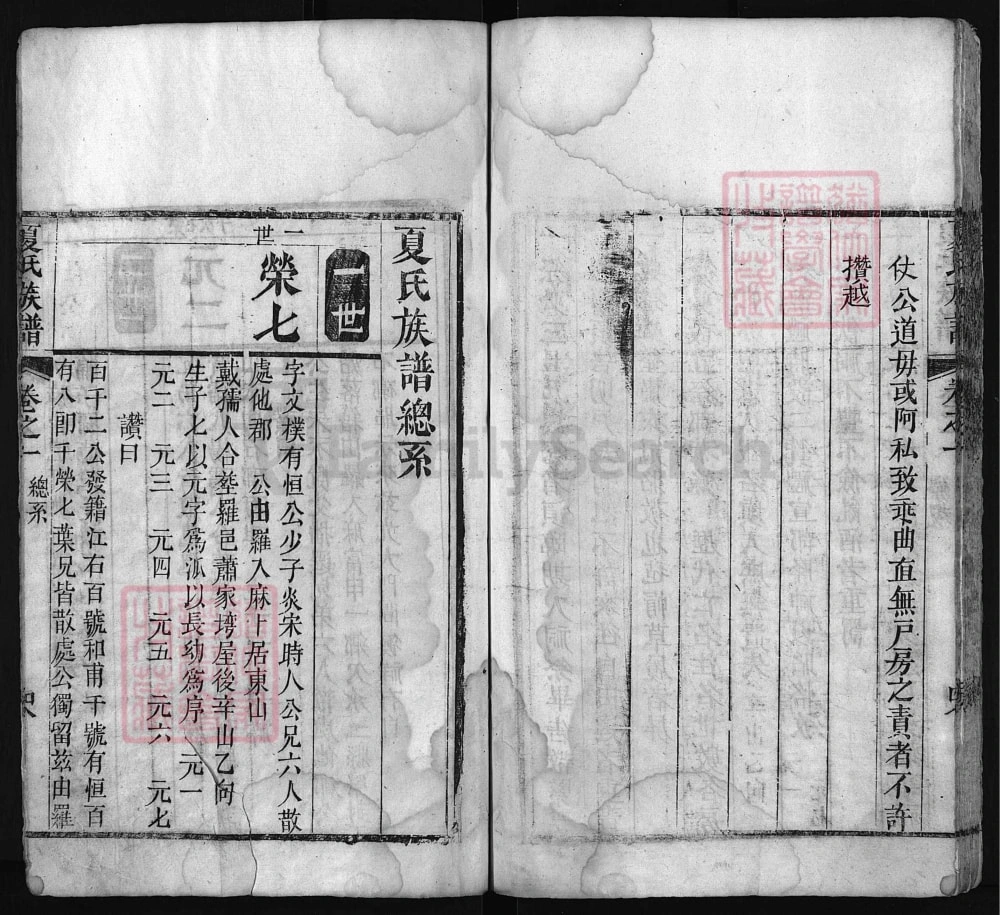 仗公道毋或阿私致乖曲直無戸房之責者不許
攢越
夏氏族譜總系
一世
一世
榮七
字文樸有恒公少子炎宋時人公兄六人散
處他郡 公由羅入麻卜居東山
戴孺人合塟羅邑蕭家塆屋後辛山乙向
生子七以元字爲派以長幼爲序 元一
元二 元三 元四 元五 元六 元七
讚曰
百千二公發籍江右百號和甫千號有恒百
有八郎千榮七葉兄皆散處公獨留兹由羅
夏氏族譜 卷之一 總系
FamilySearch